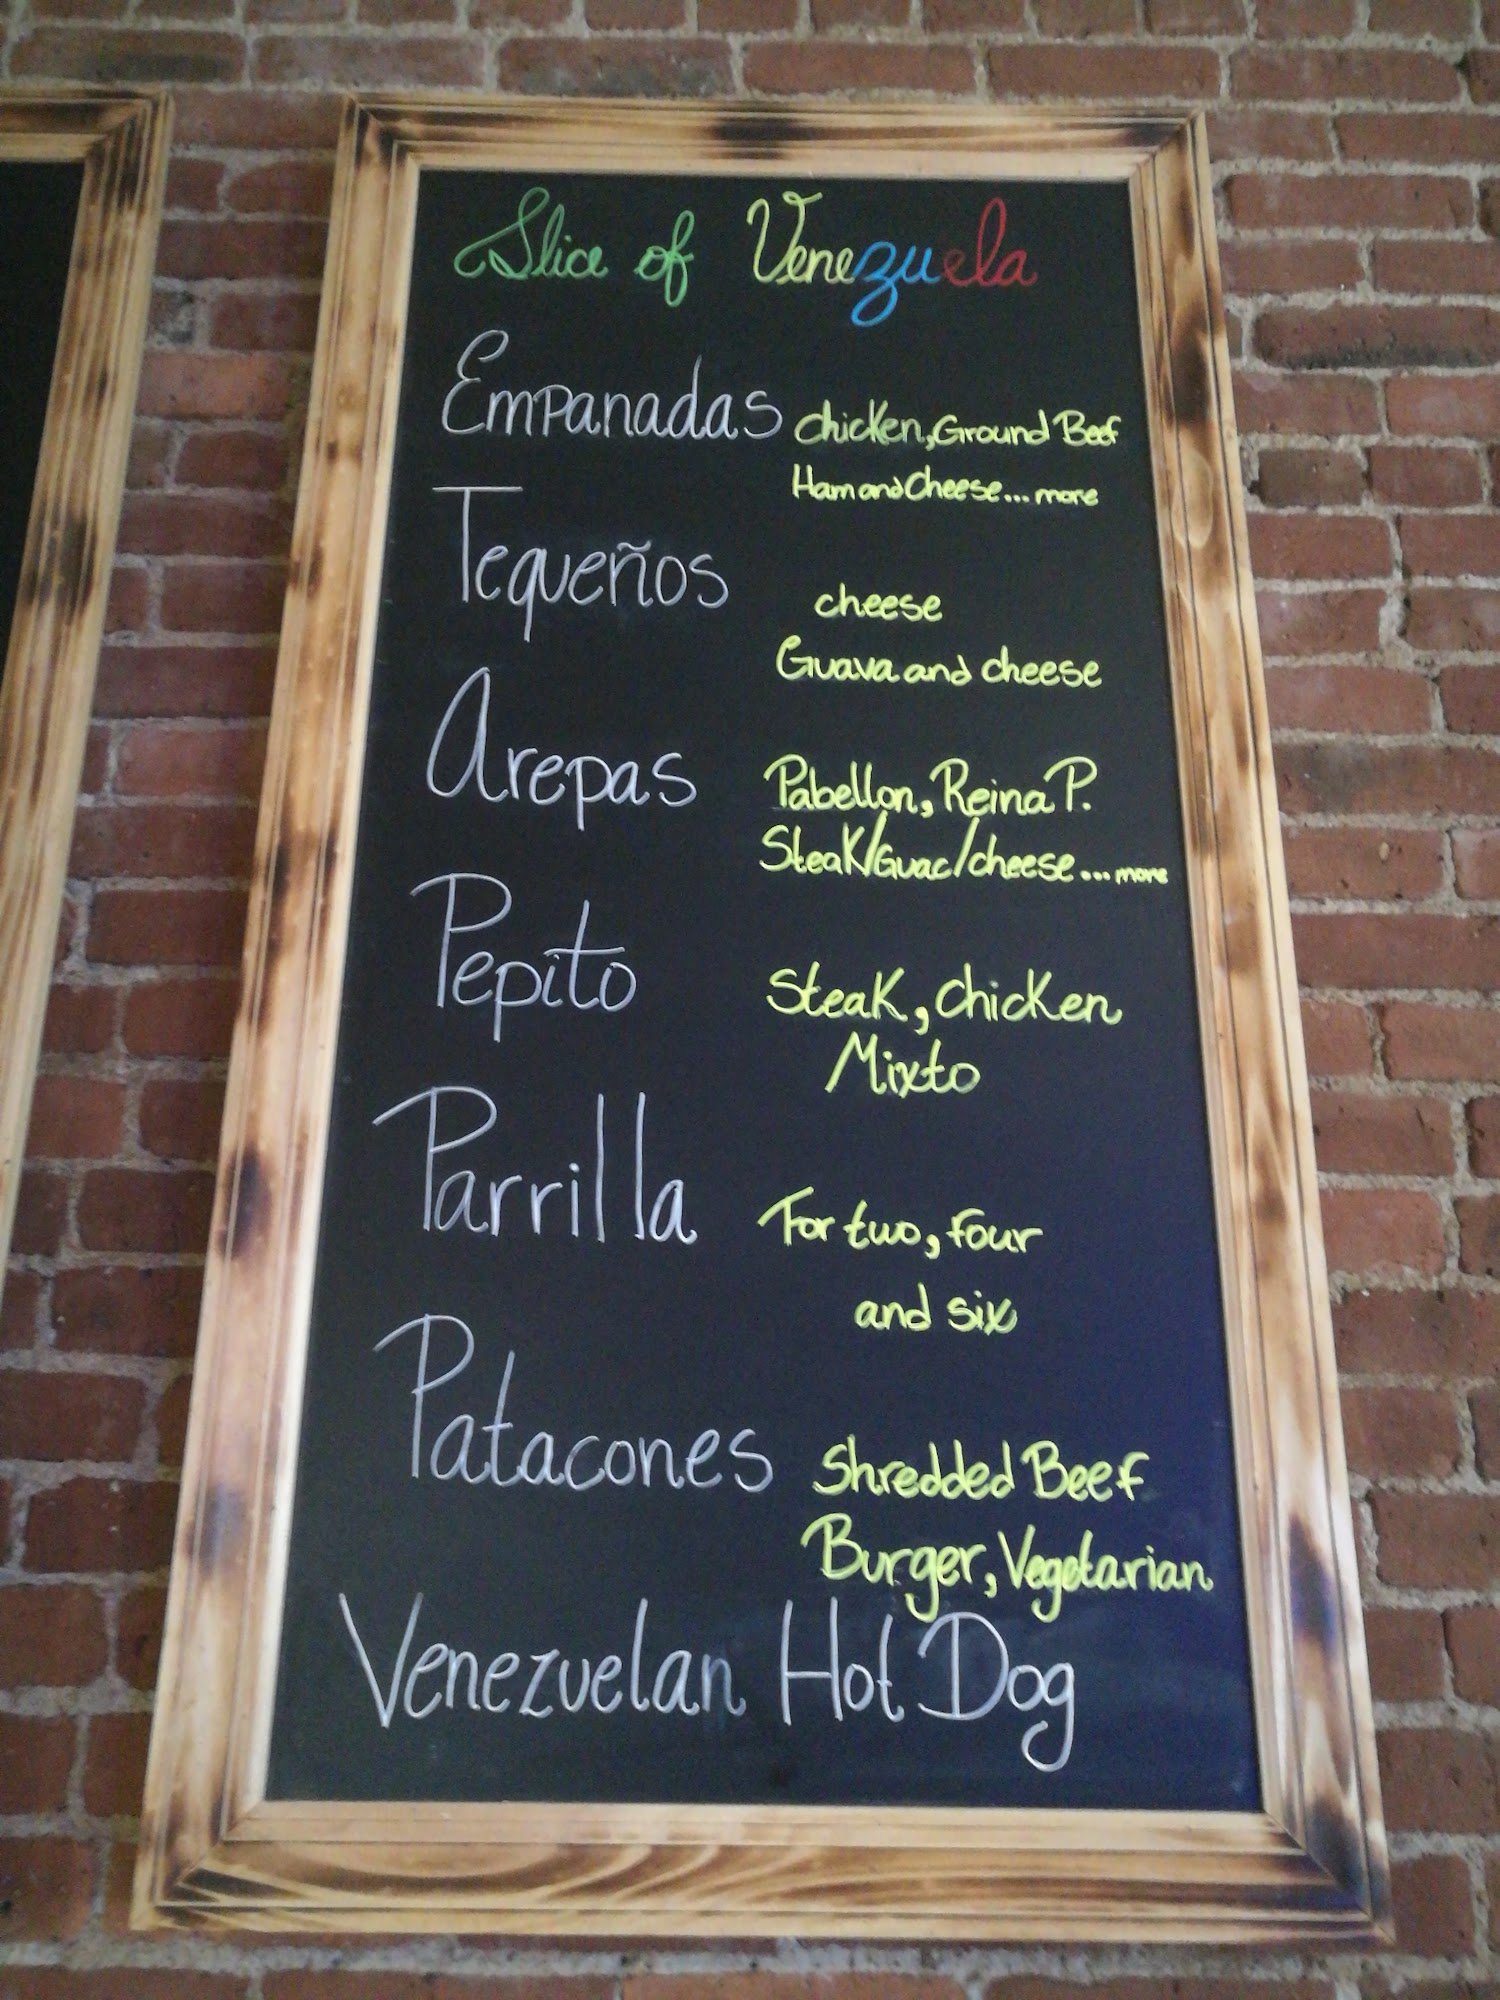 Slice of Venezuela
Empanadas chicken, Ground Beef
Ham and Cheese... more
Tequeños cheese
Guava and cheese
Arepas Pabellon, Reina P.
Steak/Guac/cheese... more
Pepito Steak, chicken
Mixto
Parrilla For two, four
and six
Patacones Shredded Beef
Burger, Vegetarian
Venezuelan Hot Dog